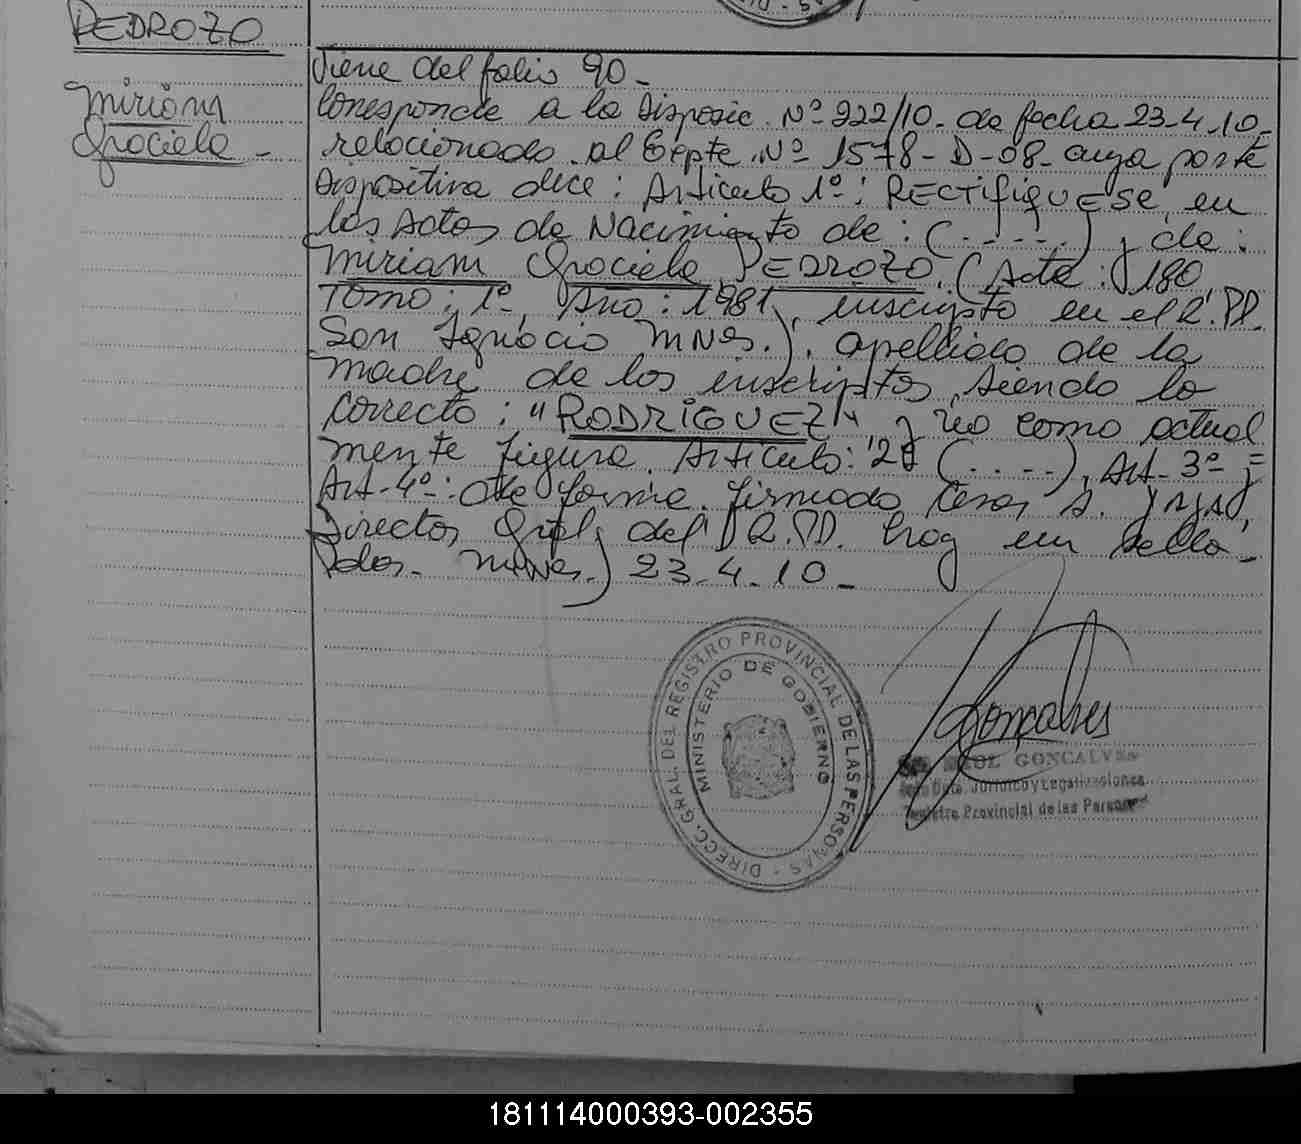 PEDROZO
Miriam
Graciela -
Viene del folio 90-
Corresponde a la Disposic. Nº 222/10- de fecha 23-4.10-
relacionado al Expte. Nº 1578-D-08- cuya parte
Dispositiva dice: Articulo 1º: RECTIFIQUESE, en
los Actos de Nacimiento de: (.....) y de:
Miriam Graciela PEDROZO. (Acta: 180,
Tomo: 1º, Año: 1981, inscripto en el R.PP.
San Ignacio Mnes.), apellido de la
madre de los inscriptos, siendo lo
correcto: "RODRIGUEZ" y no como actual
mente figura. Articulo: 2º (....), Art- 3º y
Art- 4º: de forma. Firmado
Director Gral. del R.PP. hoy en
Pdas. Mnes.) 23-4-10-
DIRECC. GRAL. DEL REGISTRO PROVINCIAL DE LAS PERSONAS -
MINISTERIO DE GOBIERNO
Goncalves
RAUL GONCALVES
Dpto. Jurídico y Legalizaciones
Registro Provincial de las Personas
181114000393-002355